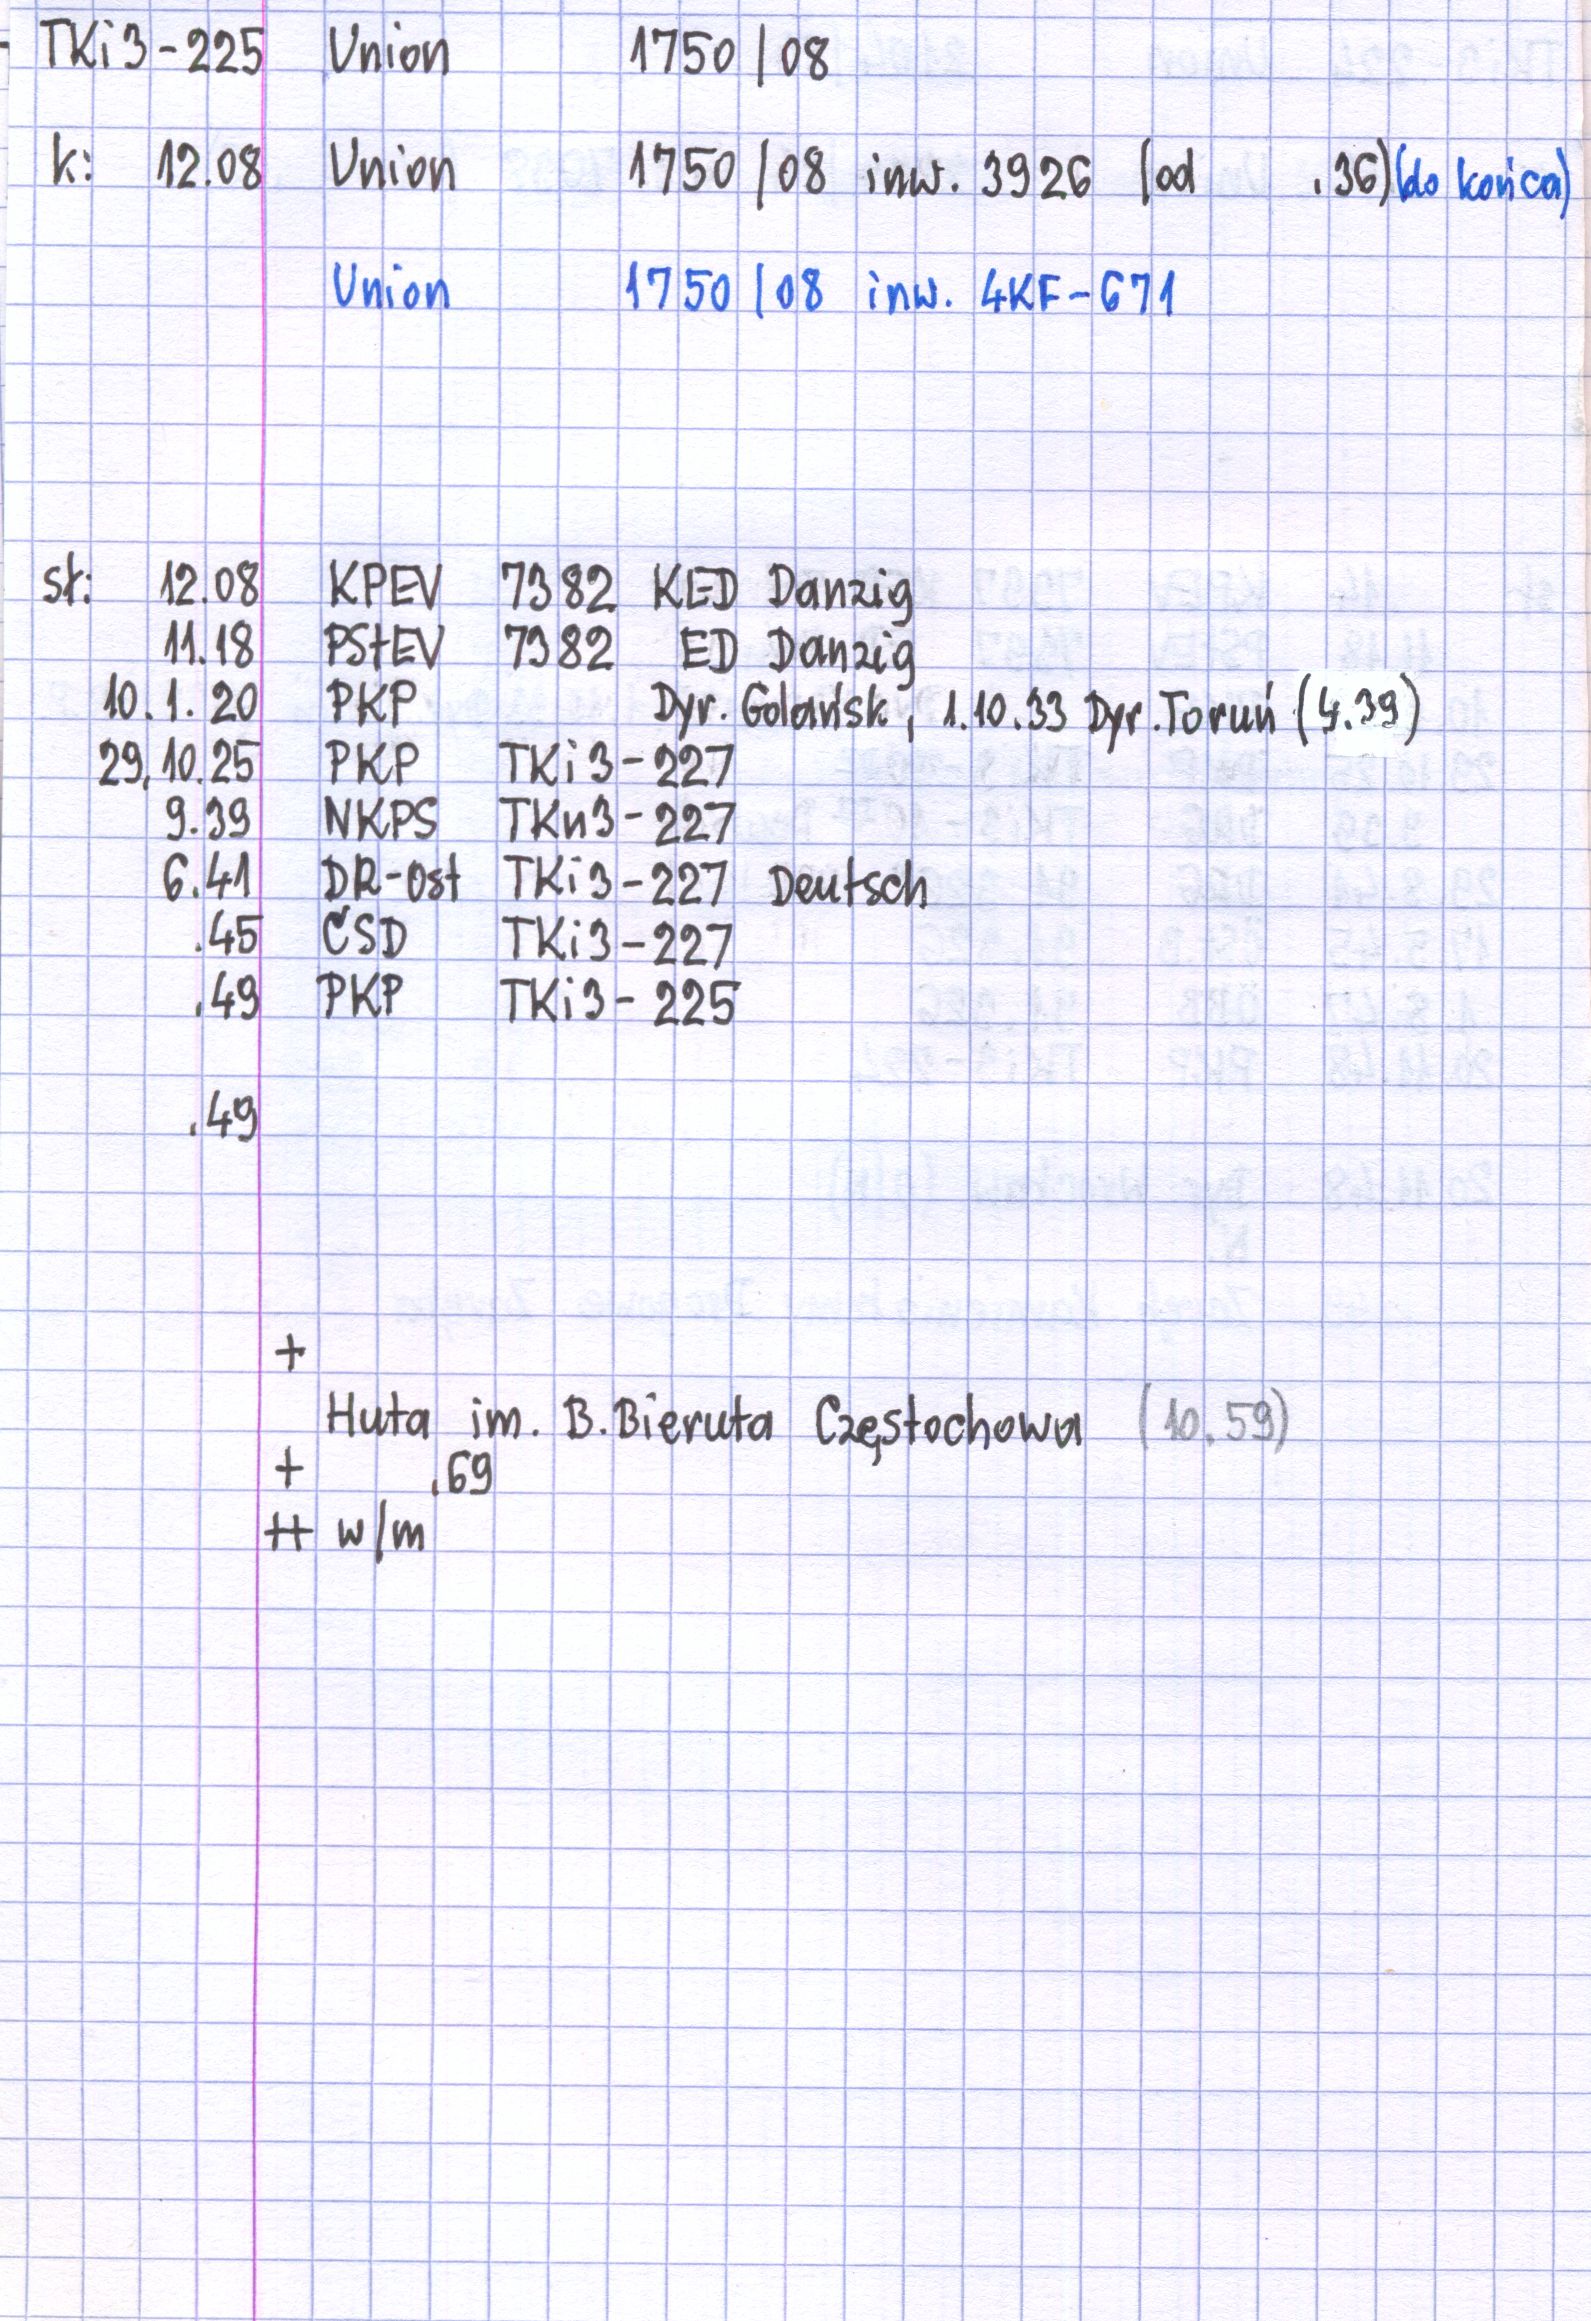 TKi3-225 Union 1750/08
k: 12.08 Union 1750/08 inw. 3926 (od .36)(do końca)
Union 1750/08 inw. 4KF-671
st: 12.08 KPEV 7382 KED Danzig
11.18 PStEV 7382 ED Danzig
10.1.20 PKP Dyr. Gdańsk, 1.10.33 Dyr. Toruń (4.39)
29.10.25 PKP TKi3-227
9.39 NKPS TKn3-227
6.41 DR-Ost TKi3-227 Deutsch
.45 ČSD TKi3-227
.49 PKP TKi3-225
.49
+
Huta im. B.Bieruta Częstochowa (10.59)
+ .69
++ w/m